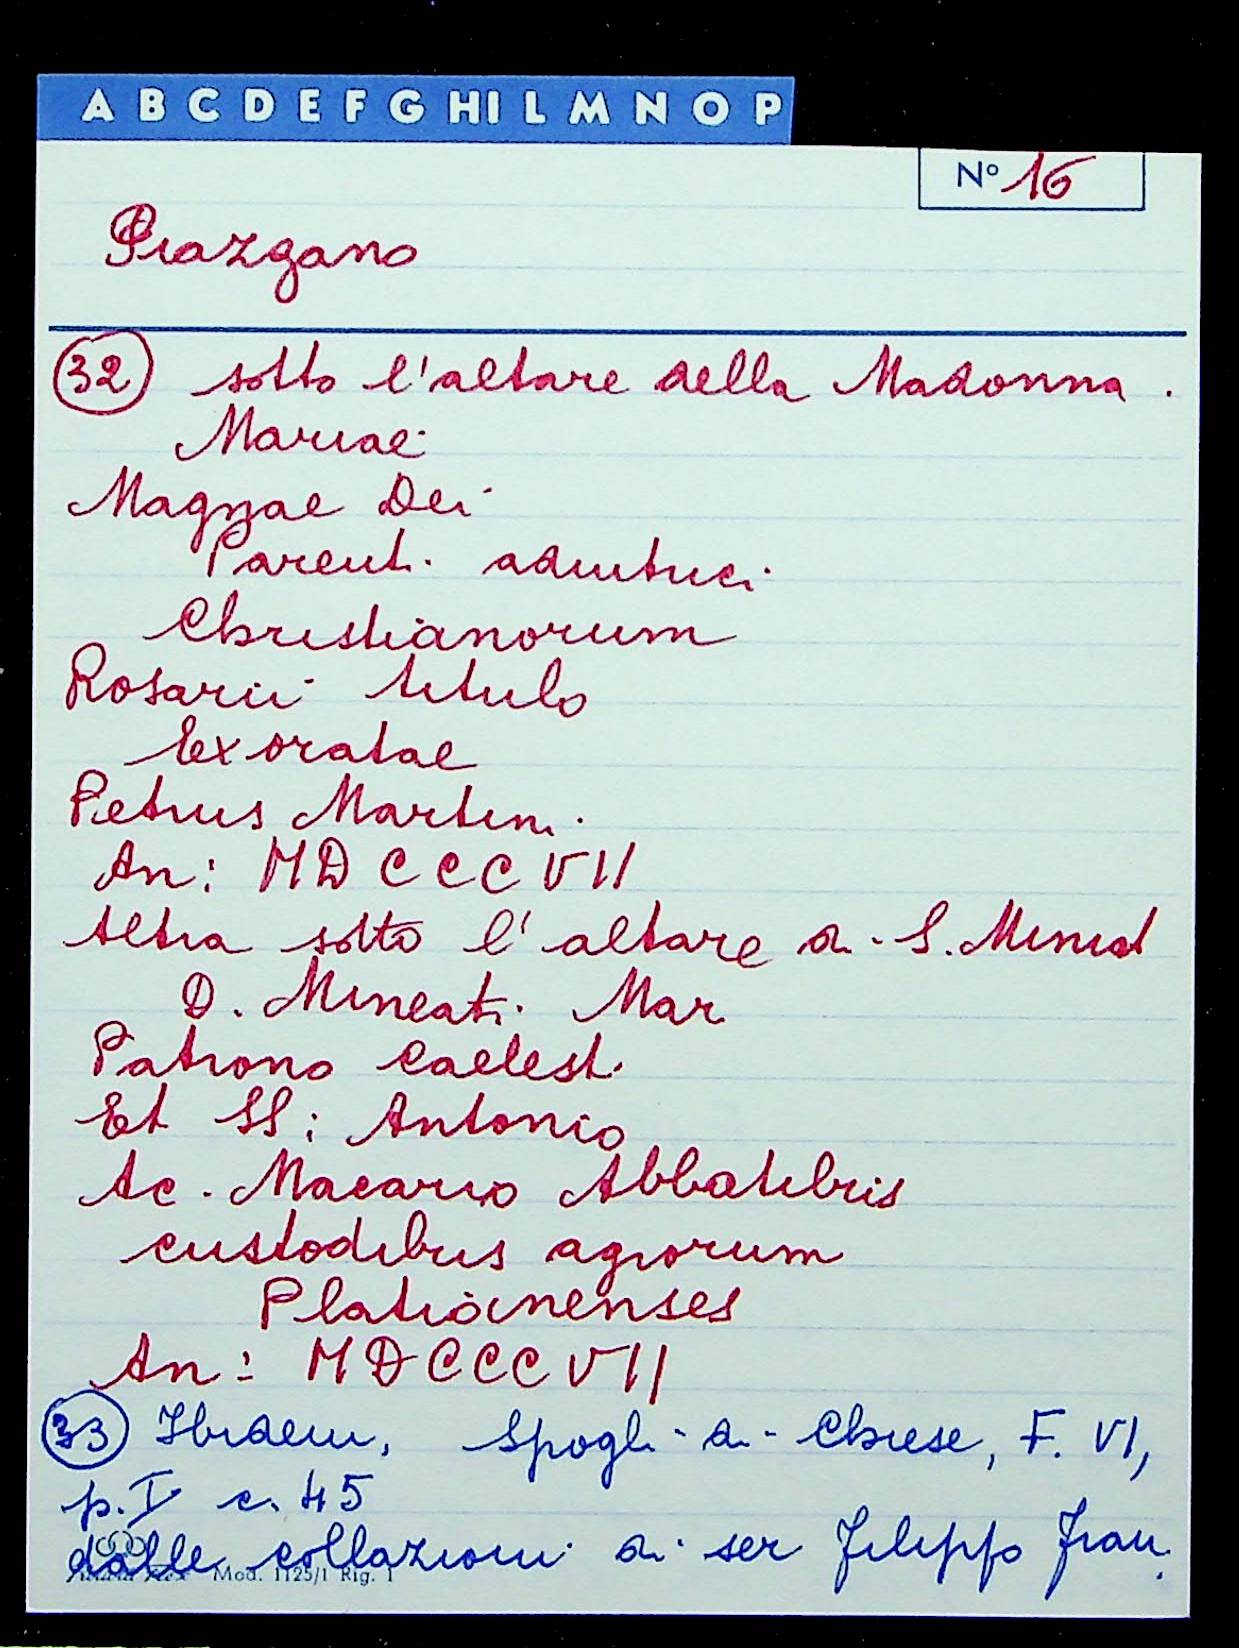 A B C D E F G H I L M N O P
N° 16
Piazzano
32 sotto l'altare della Madonna.
Mariae
Magnae Dei
Parenti adiutrici
Christianorum
Rosarii titulo
Exoratae
Petrus Martini
An: MDCCCVII
altra sotto l'altare di S. Miniat
D. Mineati Mar
Patrono Caelesti
Et SS: Antonio
Ac. Macario Abbatibus
custodibus agrorum
An: MDCCCVII
33 Ibidem, Spogli di Chiese, F. VI,
p. I c. 45
dalle collazioni di ser Filippo Fran.
Mod. 1125/1 Rig. 1